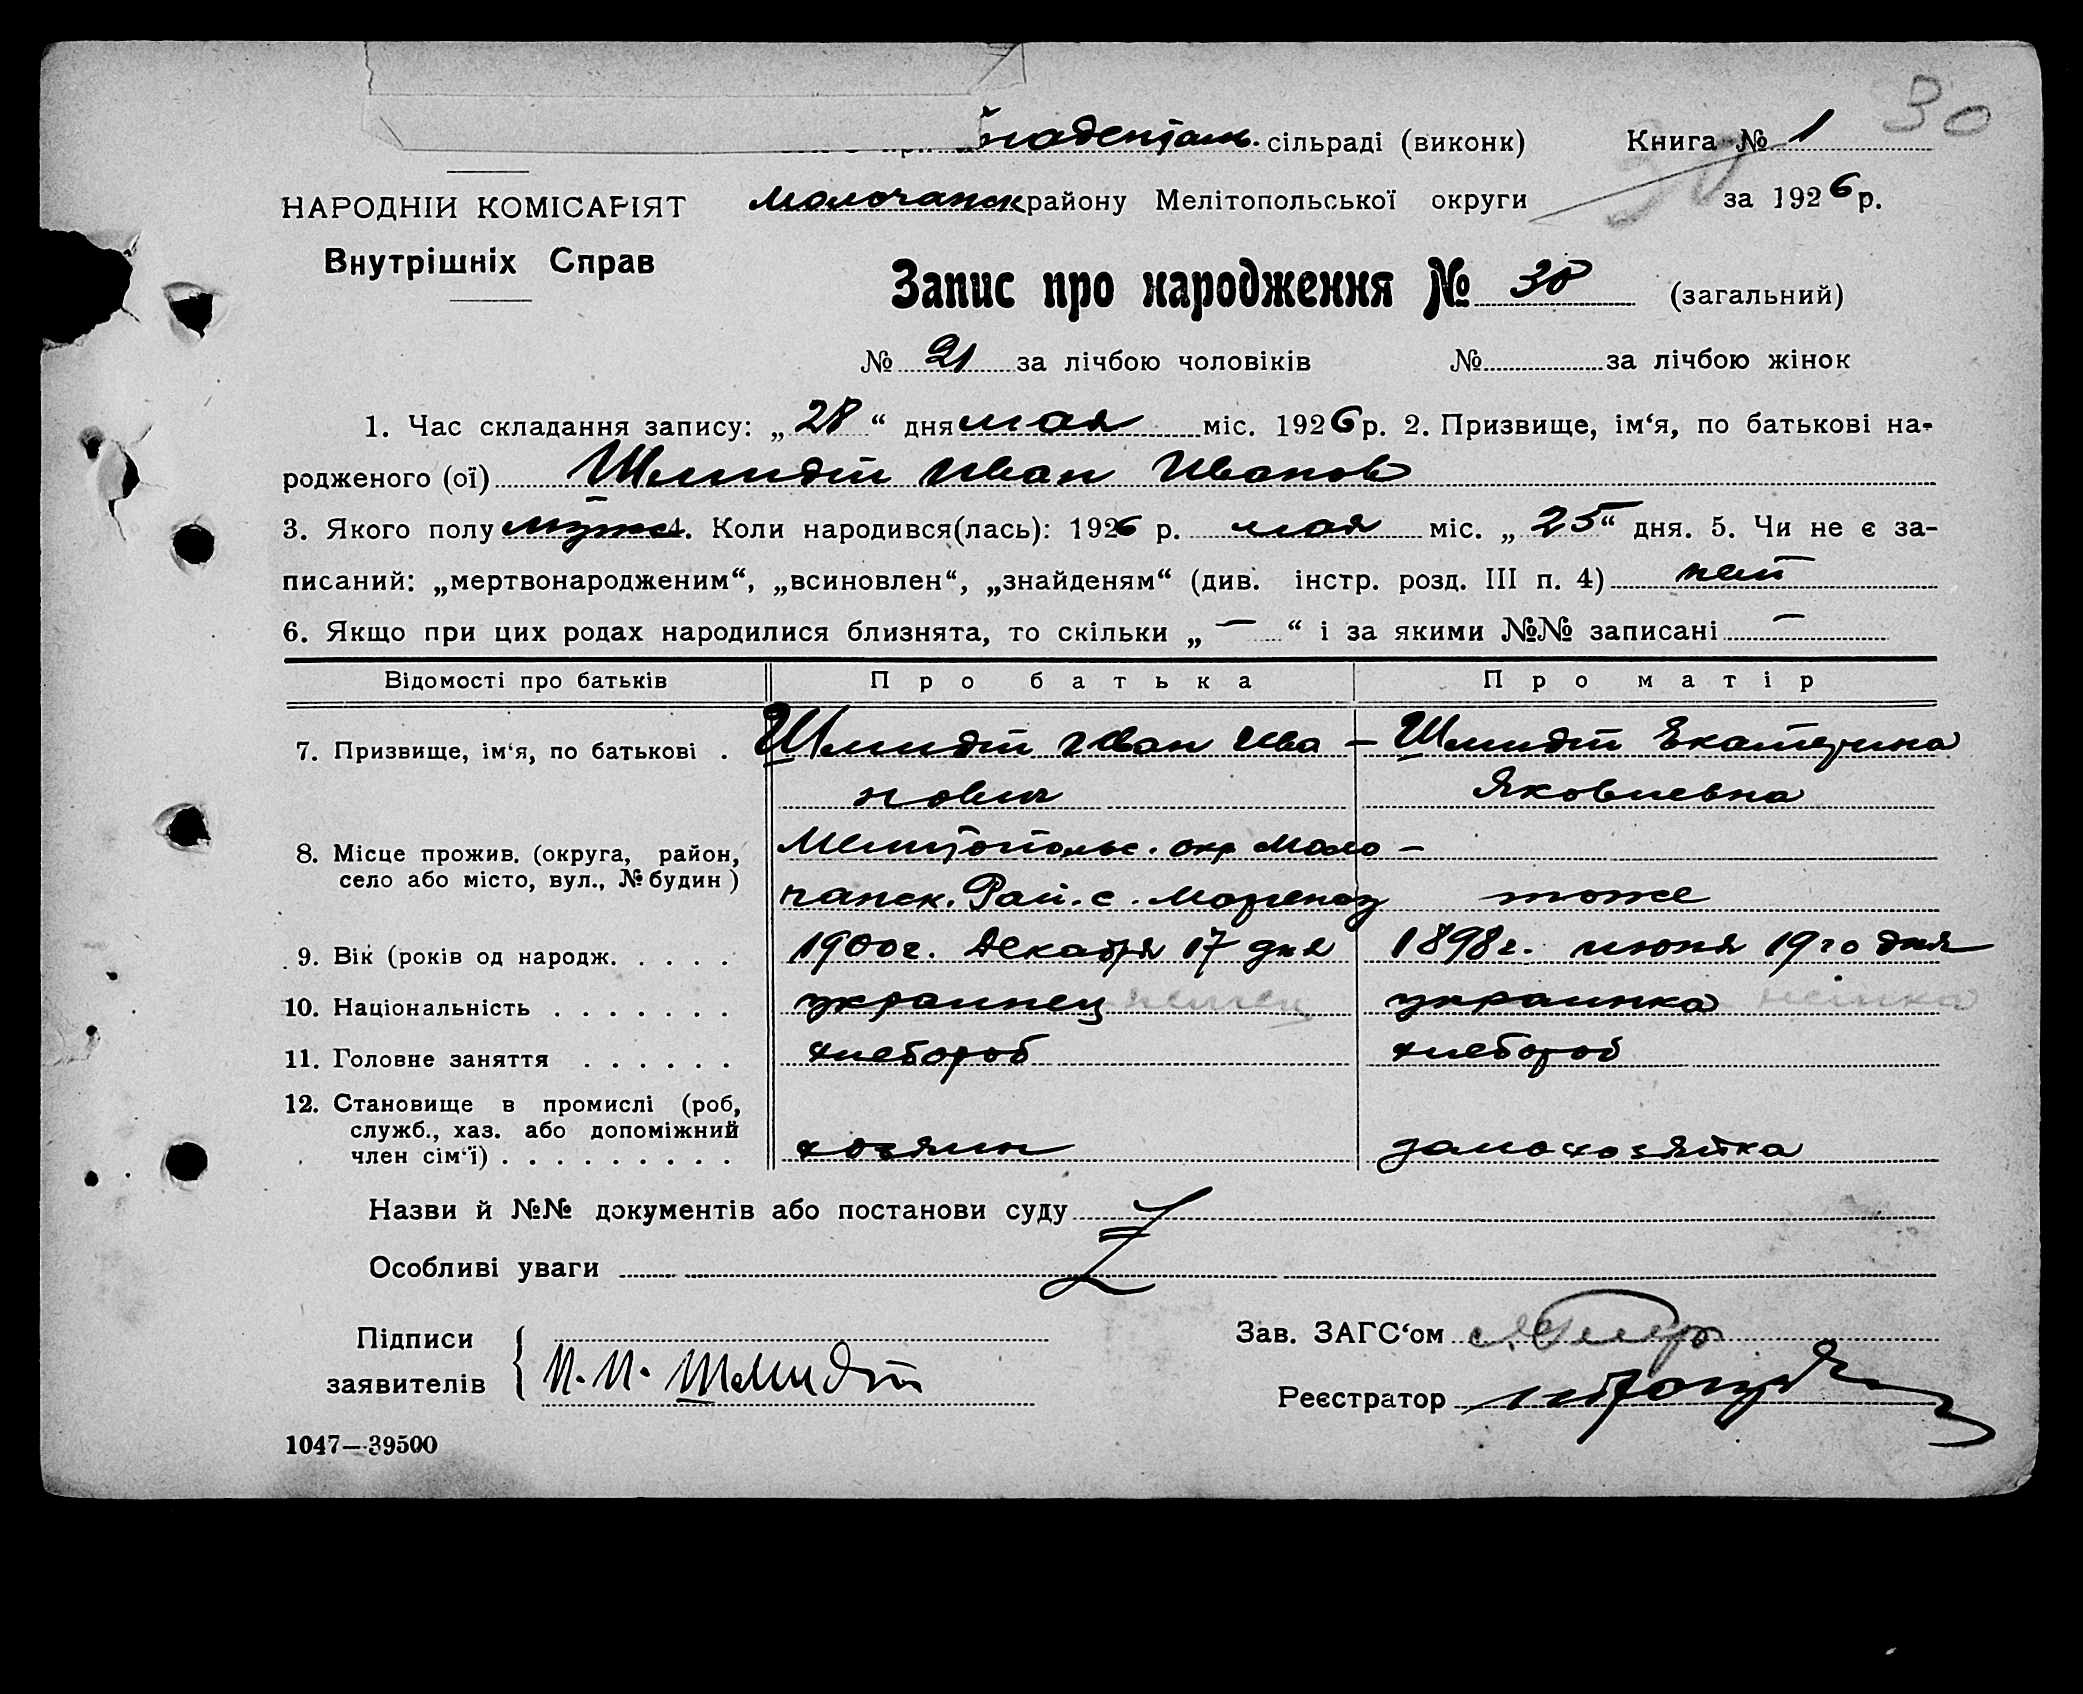 30
гнаденталь. сільраді (виконк) Книга № 1
НАРОДНІЙ КОМІСАРІЯТ Молочанск району Мелітопольської округи 30 за 1926 р.
Внутрішніх Справ
Запис про народження № 30 (загальний)
№ 21 за лічбою чоловіків № за лічбою жінок
1. Час складання запису: „ 28 “ дня мая міс. 1926 р. 2. Призвище, ім‘я, по батькові на-
родженого (ої) Шмидт Иван Иванов
3. Якого полу муж 4. Коли народився(лась): 1926 р. мая міс. „ 25 “ дня. 5. Чи не є за-
писаний: „мертвонародженим“, „всиновлен“, „знайденям“ (див. інстр. розд. III п. 4) нет
6. Якщо при цих родах народилися близнята, то скільки „ — “ і за якими №№ записані —
Відомості про батьків Про батька Про матір
7. Призвище, ім‘я, по батькові . Шмидт Иван Ива- Шмидт Екатерина
нович Яковлевна
8. Місце прожив. (округа, район, Мелитопольс. окр Моло-
село або місто, вул., № будин ) чанск. Рай. с. тоже
9. Вік (років од народж. . . . . 1900г. Декабря 17 дня 1898г. июня 19го дня
10. Національність . . . . . . . украинец немец украинка немка
11. Головне заняття . . . . . . хлебороб хлебороб
12. Становище в промислі (роб,
служб., хаз. або допоміжний
член сім‘ї) . . . . . . . . . хозяин домохозяйка
Назви й №№ документів або постанови суду
Особливі уваги
Підписи Зав. ЗАГС‘ом
заявителів И. И. Шмидт
Реєстратор
1047—39500